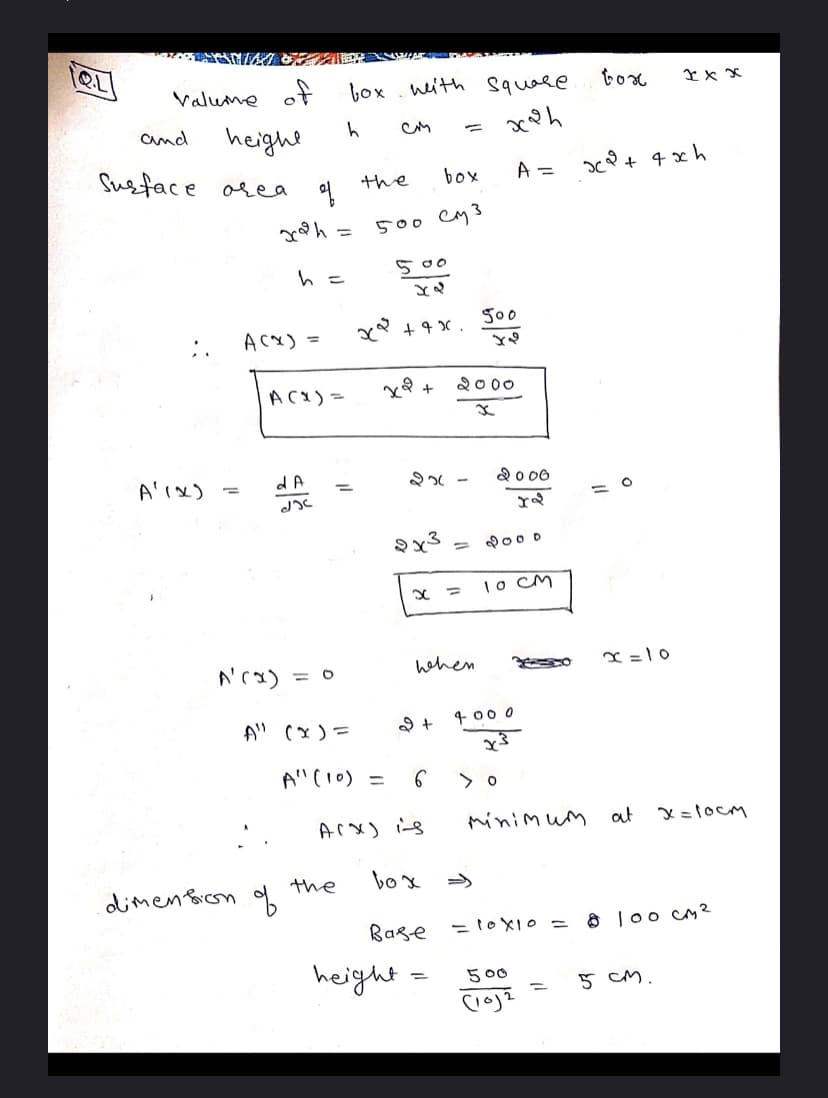 Q.1
Valume of box with Square box x × x
and heighe h cm = x²h
Surface area of the box A = x² + 4xh
x²h = 500 cm³
h = 500/x²
∴ A(x) = x² + 4x. 500/x²
A(x) = x² + 2000/x
A'(x) = dA/dx = 2x - 2000/x² = 0
2x³ = 2000
x = 10 cm
A'(x) = 0 when x = 10
A''(x) = 2 + 4000/x³
A''(10) = 6 > 0
∴ A(x) is minimum at x = 10cm
dimension of the box ⇒
Base = 10×10 = 100 cm²
height = 500/(10)² = 5 cm.